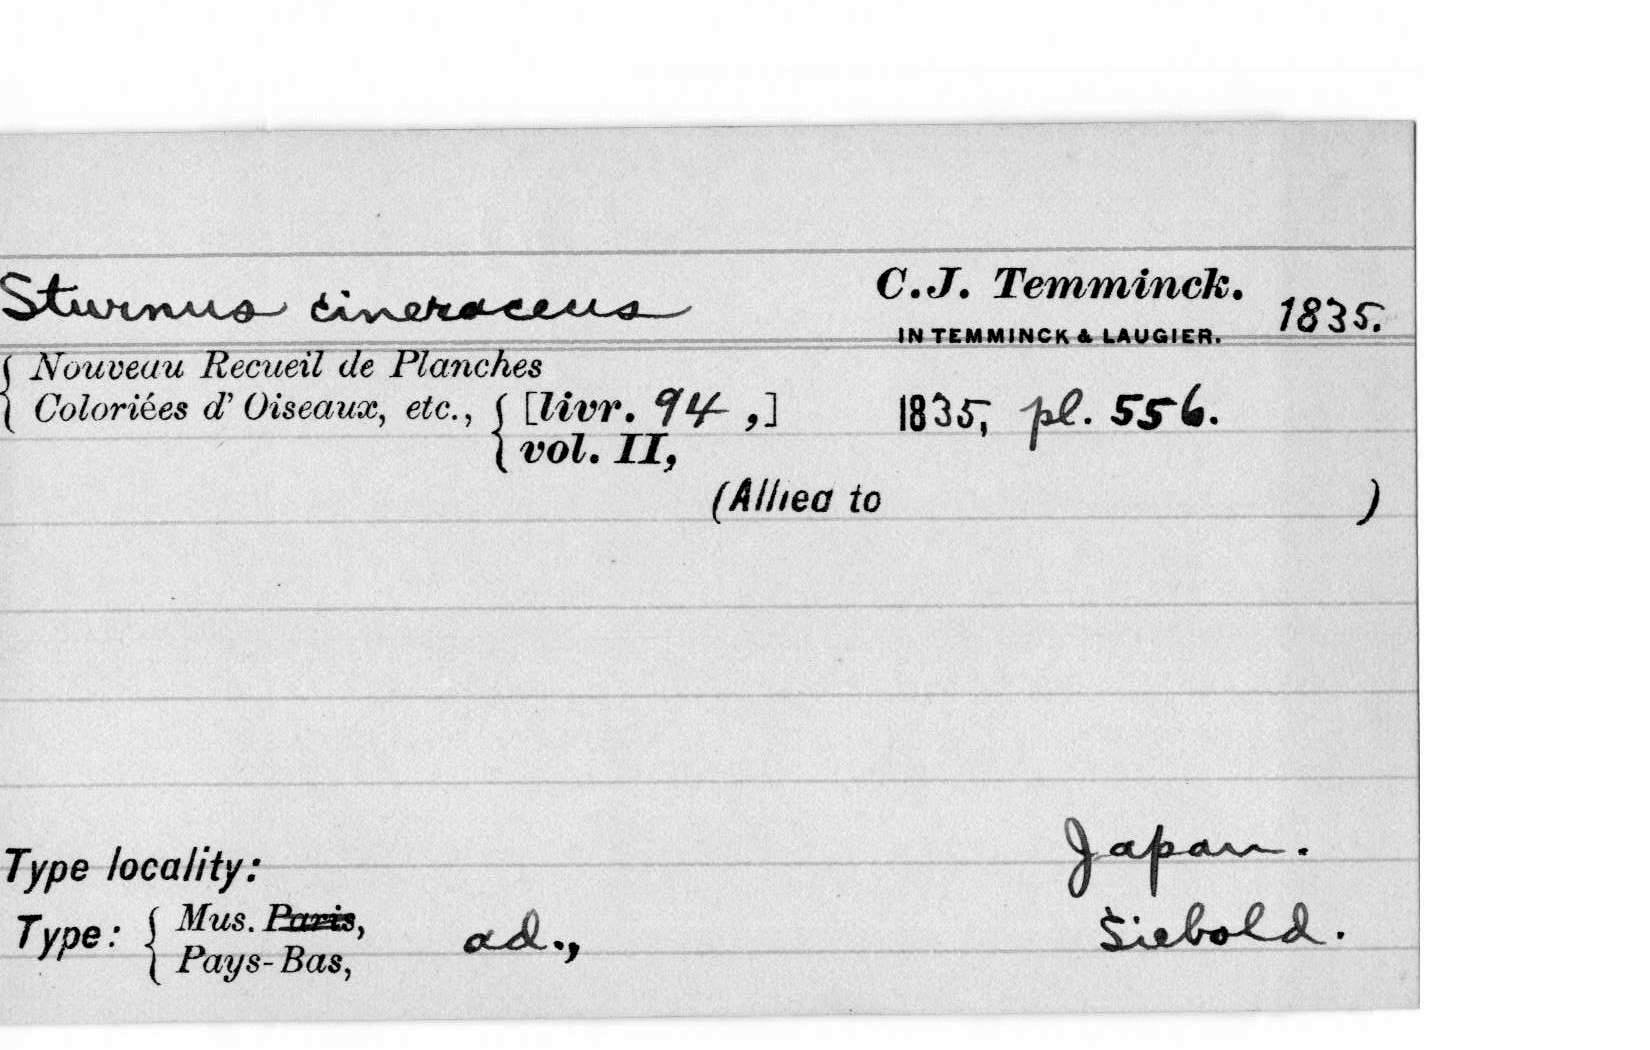 Sturnus cineraceus C.J. Temminck. 1835.
IN TEMMINCK & LAUGIER.
{ Nouveau Recueil de Planches
{ Coloriées d' Oiseaux, etc., { [livr. 94 ,] 1835, pl. 556.
{ vol. II,
(Allied to )
Type locality: Japan.
Type: { Mus. Paris, ad., Siebold.
{ Pays-Bas,